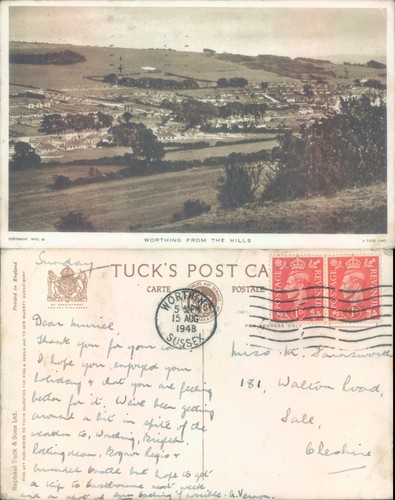 WORTHING FROM THE HILLS
A TUCK CARD
Sunday
TUCK'S POST CA
CARTE POSTALE
Printed in England
Raphael Tuck & Sons Ltd.
WORTHING
15 AUG
1948
SUSSEX
POSTAGE REVENUE
POSTAGE REVENUE
FOR ADDRESS ONLY
Dear Muriel
Thank you for your
I hope you enjoyed your
holiday & that you are feeling
better for it. We've been getting
around a bit in spite of the
weather to, Worthing, Brighton,
Rottingdean, Bognor Regis &
Arundel Castle but hope to get
a trip to Eastbourne next week
and a spot of bathing if possible. A. Vernon.
Miss M. Farnsworth
181, Walton Road,
Sale,
Cheshire